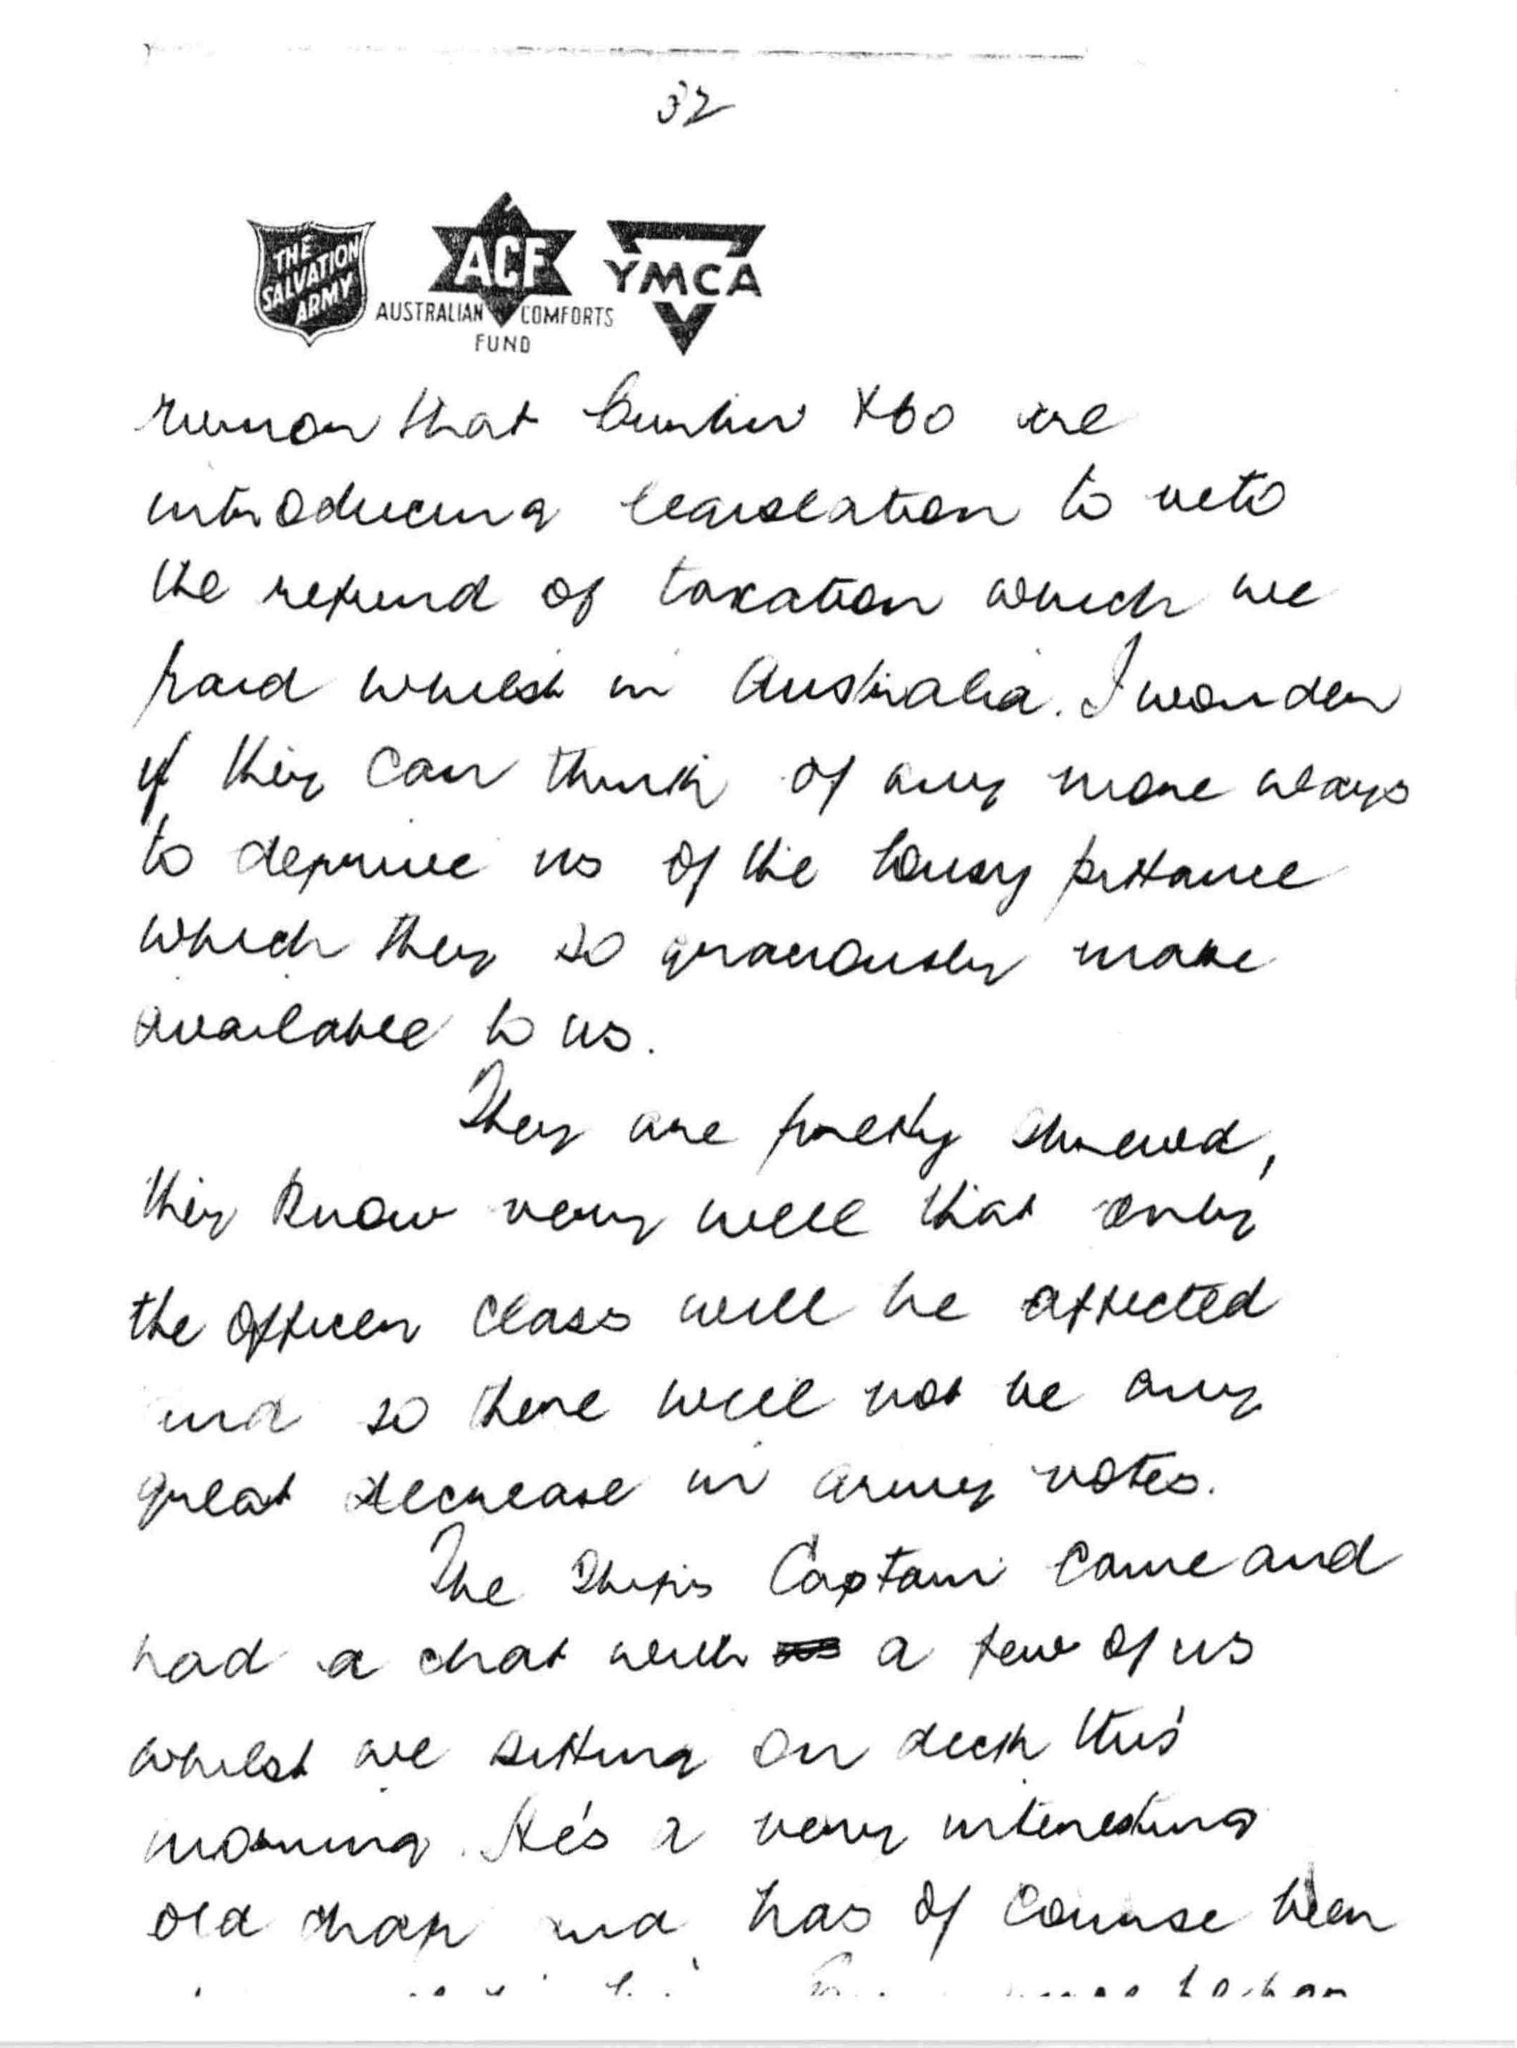 32
THE SALVATION ARMY
ACF
AUSTRALIAN COMFORTS FUND
YMCA
rumor that Curtin &Co are
introducing legislation to veto
the refund of taxation which we
paid whilst in Australia. I wonder
if they can think of any more ways
to deprive us of the lousy pittance
which they so graciously make
available to us.
They are pretty shrewd,
they know very well that only
the officer class will be affected
and so there will not be any
great decrease in army votes.
The Ship's Captain came and
had a chat with a few of us
whilst we sitting on deck this
morning. He's a very interesting
old chap and has of course been